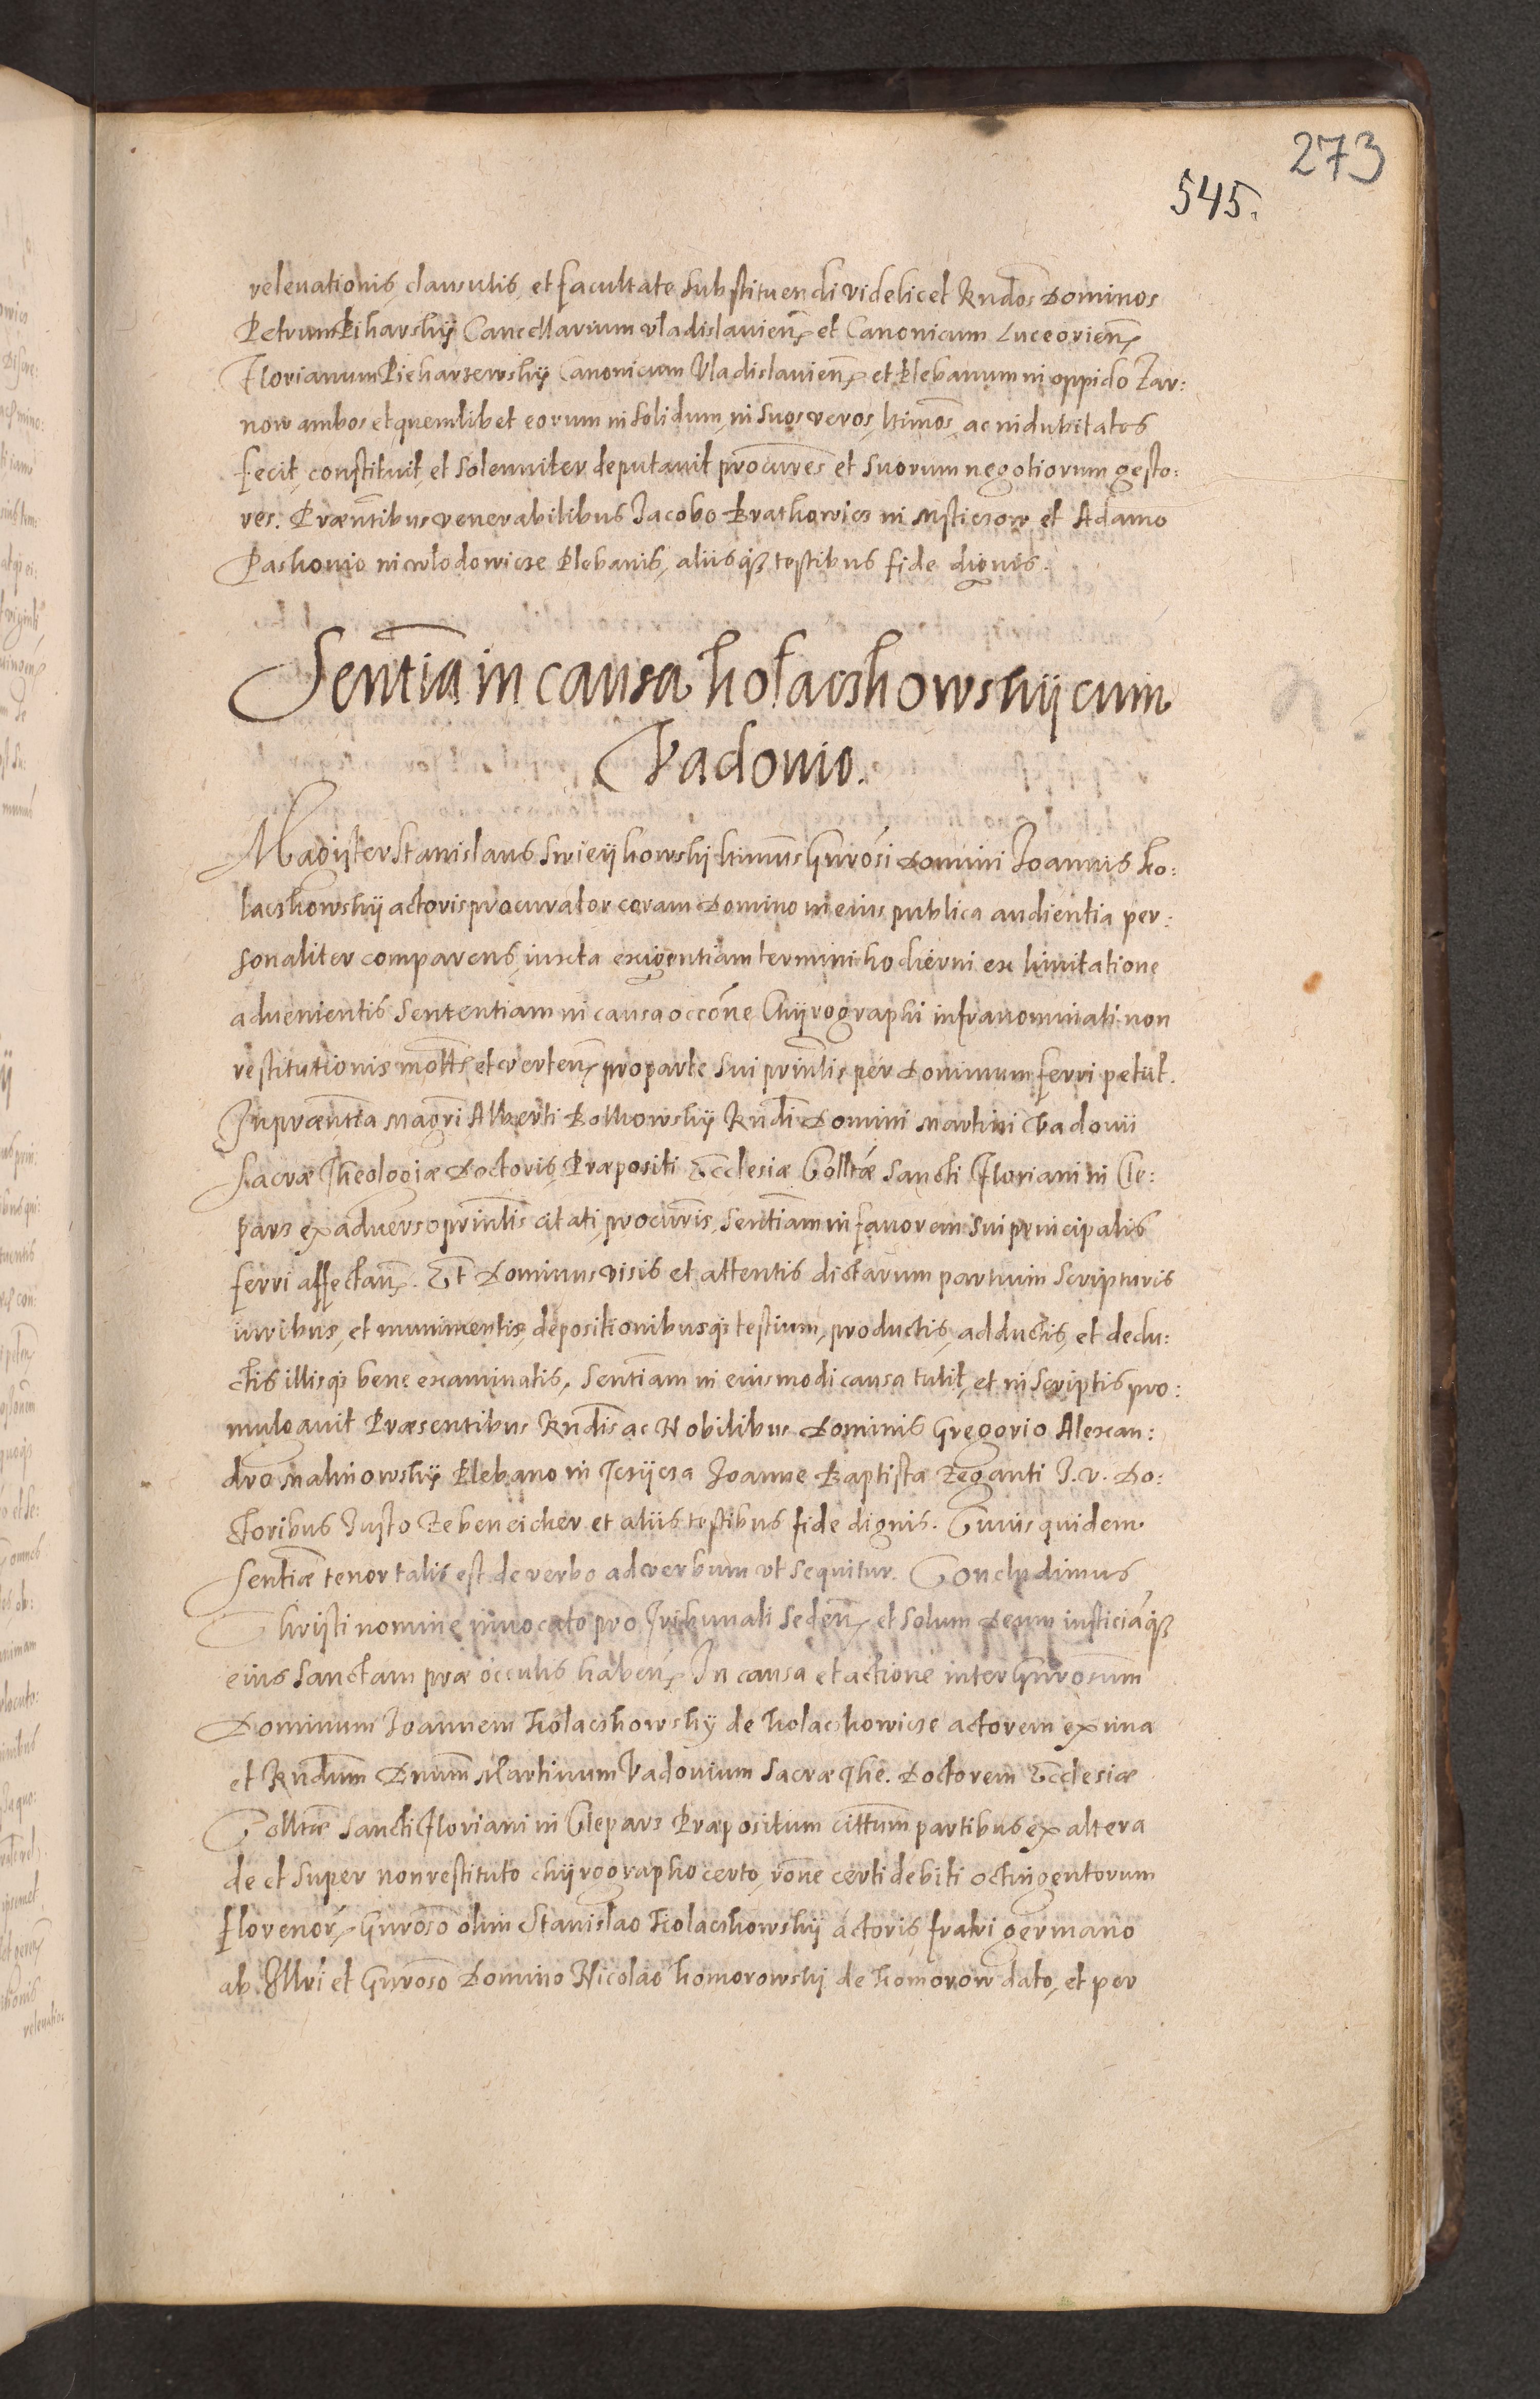 273
545.
releuationis, clausulis, et facultate substituendi videlicet Rndos Dominos
Petrum Piharskÿ Cancellarium Vladislauien̄ et Canonicum Luceorien̄
Florianum Piekarzewskÿ Canonicum Vladislauien̄ et Plebanum in oppido Tar:
now ambos et quemlibet eorum in solidum, in suos veros, ltimos, ac indubitatos
fecit, constituit, et solenniter deputauit procures et suorum negotiorum gesto:
res. Præntibus venerabilibus Jacobo Brathowicz in Msticzow et Adamo
Paskouio in Wlodowicze Plebanis, aliisq3 testibus fide dignis.
Sentīa in causa Kołaczkowskÿ cum
Vadouio.
Magister Stanislaus Swieÿkowskÿ ltimus Gnrosi Domini Joannis Ko:
laczkowskÿ actoris procurator coram Domino in eius publica audientia per:
sonaliter comparens, iuxta exigentiam termini hodierni ex limitatione
aduenientis Sententiam in causa occone Chÿrographi infranominati non
restitutionis mott̄ et verten̄ pro parte sui prinlis per Dominum ferri petiit.
In præntia Magri Alberti Bolkowskÿ Rndi Domini Martini Vadouii
Sacræ Theologiæ Doctoris, Præpositi Ecclesiæ Colltæ Sancti Floriani in Cle:
parz ex aduerso prinlis citati, procuris, sentiam in fauorem sui principalis
ferri affectan̄. Et Dominus visis et attentis dictarum partium scripturis
iuribus, et munimentis, depositionibusq3 testium, productis, adductis, et dedu:
ctis illisq3 bene examinatis, sentiam in eiusmodi causa tulit, et in scriptis pro:
mulgauit Præsentibus Rndis ac Nobilibus Dominis Gregorio Alexan:
dro Malinowskÿ Plebano in Jczÿcza Joanne Baptista Zeganti J. V. Do:
ctoribus Justo Zebeneicher et aliis testibus fide dignis. Cuius quidem
sentiæ tenor talis est de verbo ad verbum vt sequitur. Concludimus
Christi nomine inuocato pro Tribunali seden̄ et solum Deum iusticiāq3
eius sanctam præ occulis haben̄ In causa et actione inter Gnrosum
Dominum Joannem Kolaczkowskÿ de Kolaczkowicze actorem ex una
et Rndum Dnum Martinum Vadouium Sacræ The. Doctorem Ecclesiæ
Colltæ Sancti Floriani in Cleparz Præpositum cittum partibus ex altera
de et super non restituto chÿrographo certo, rone certi debiti octingentorum
florenor̄ Gnroso olim Stanislao Kolaczkowskÿ actoris fratri germano
ab Illri et Gnroso Domino Nicolao Komorowski de Komorow dato, et per